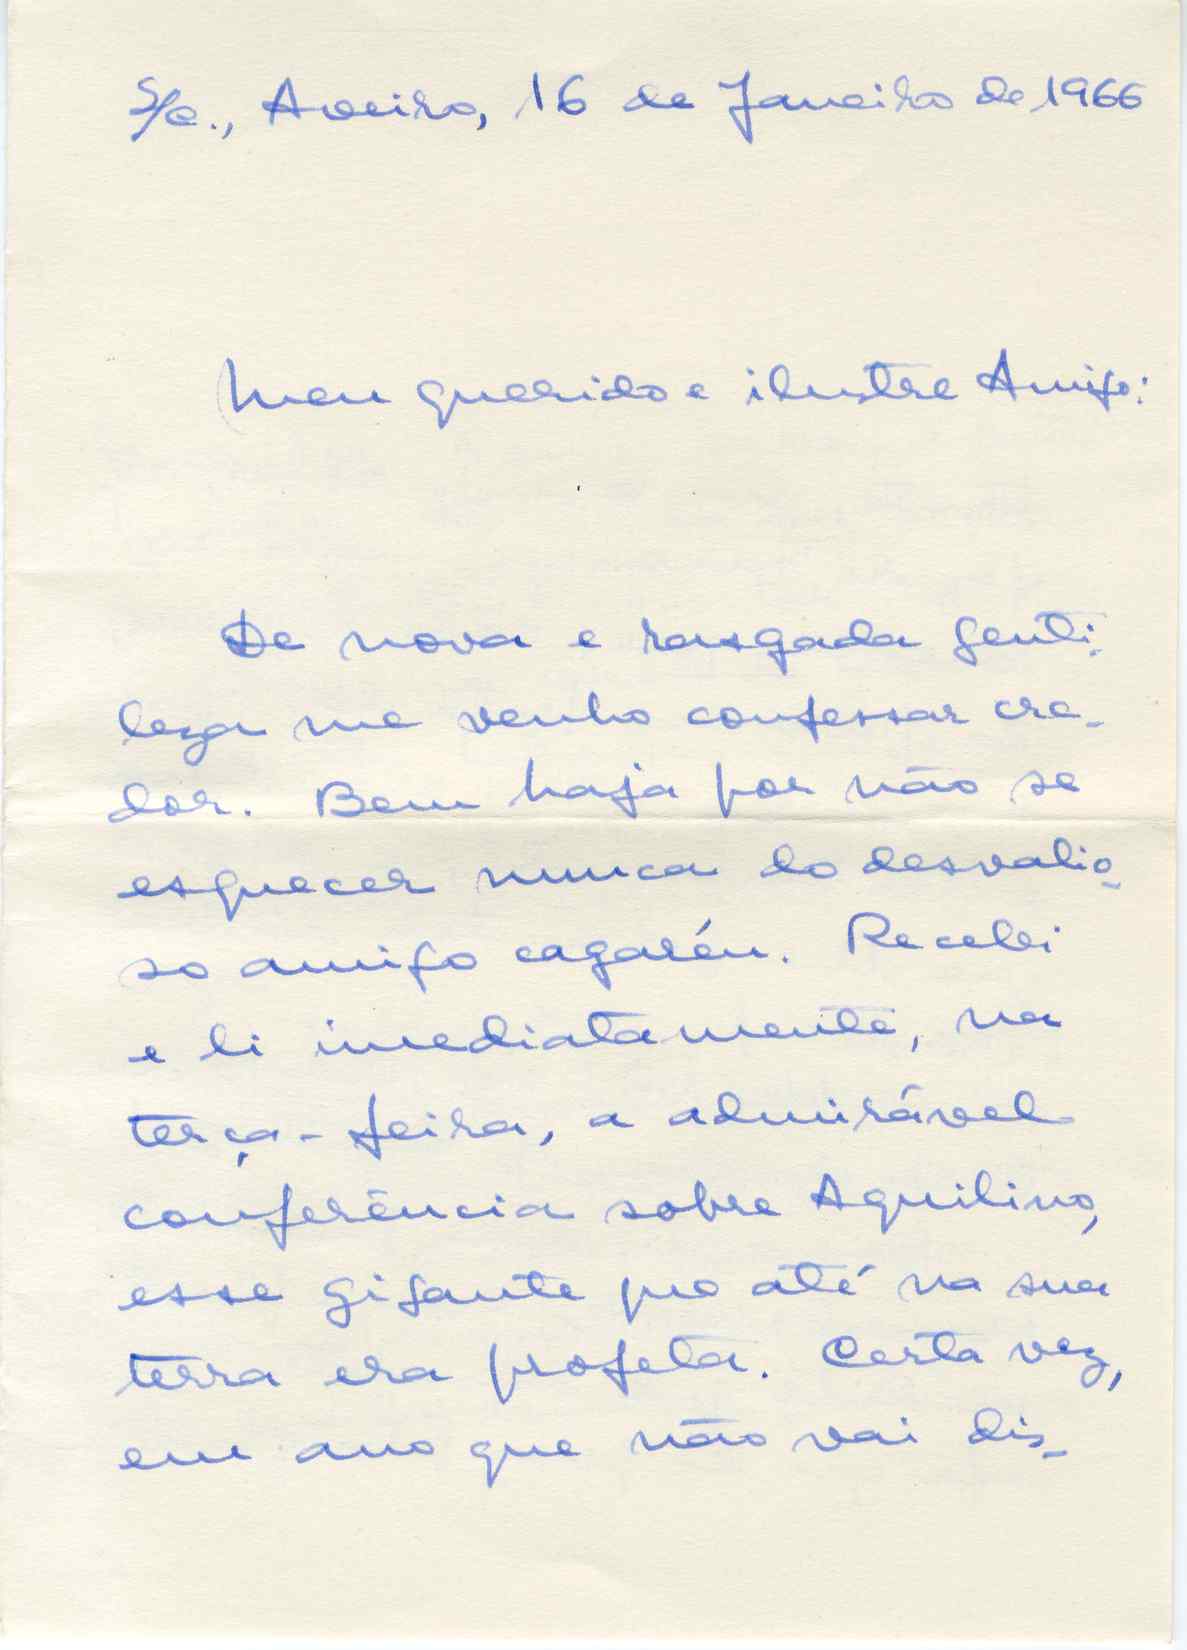 S/c., Aveiro, 16 de Janeiro de 1966
Meu querido e ilustre Amigo:
De nova e rasgada genti-
leza me venho confessar cre-
dor. Bem haja por não se
esquecer nunca do desvalio-
so amigo cagaréu. Recebi
e li imediatamente, na
terça-feira, a admirável
conferência sobre Aquilino,
esse gigante que até na sua
terra era profeta. Certa vez,
em ano que não vai dis-